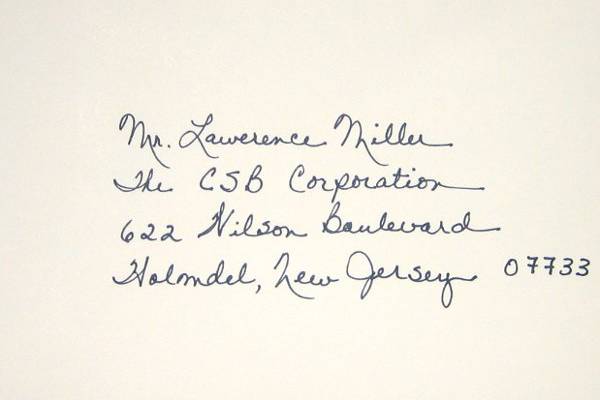 Mr. Lawerence Miller
The CSB Corporation
622 Nilson Baulevard
Holmdel, New Jersey 07733